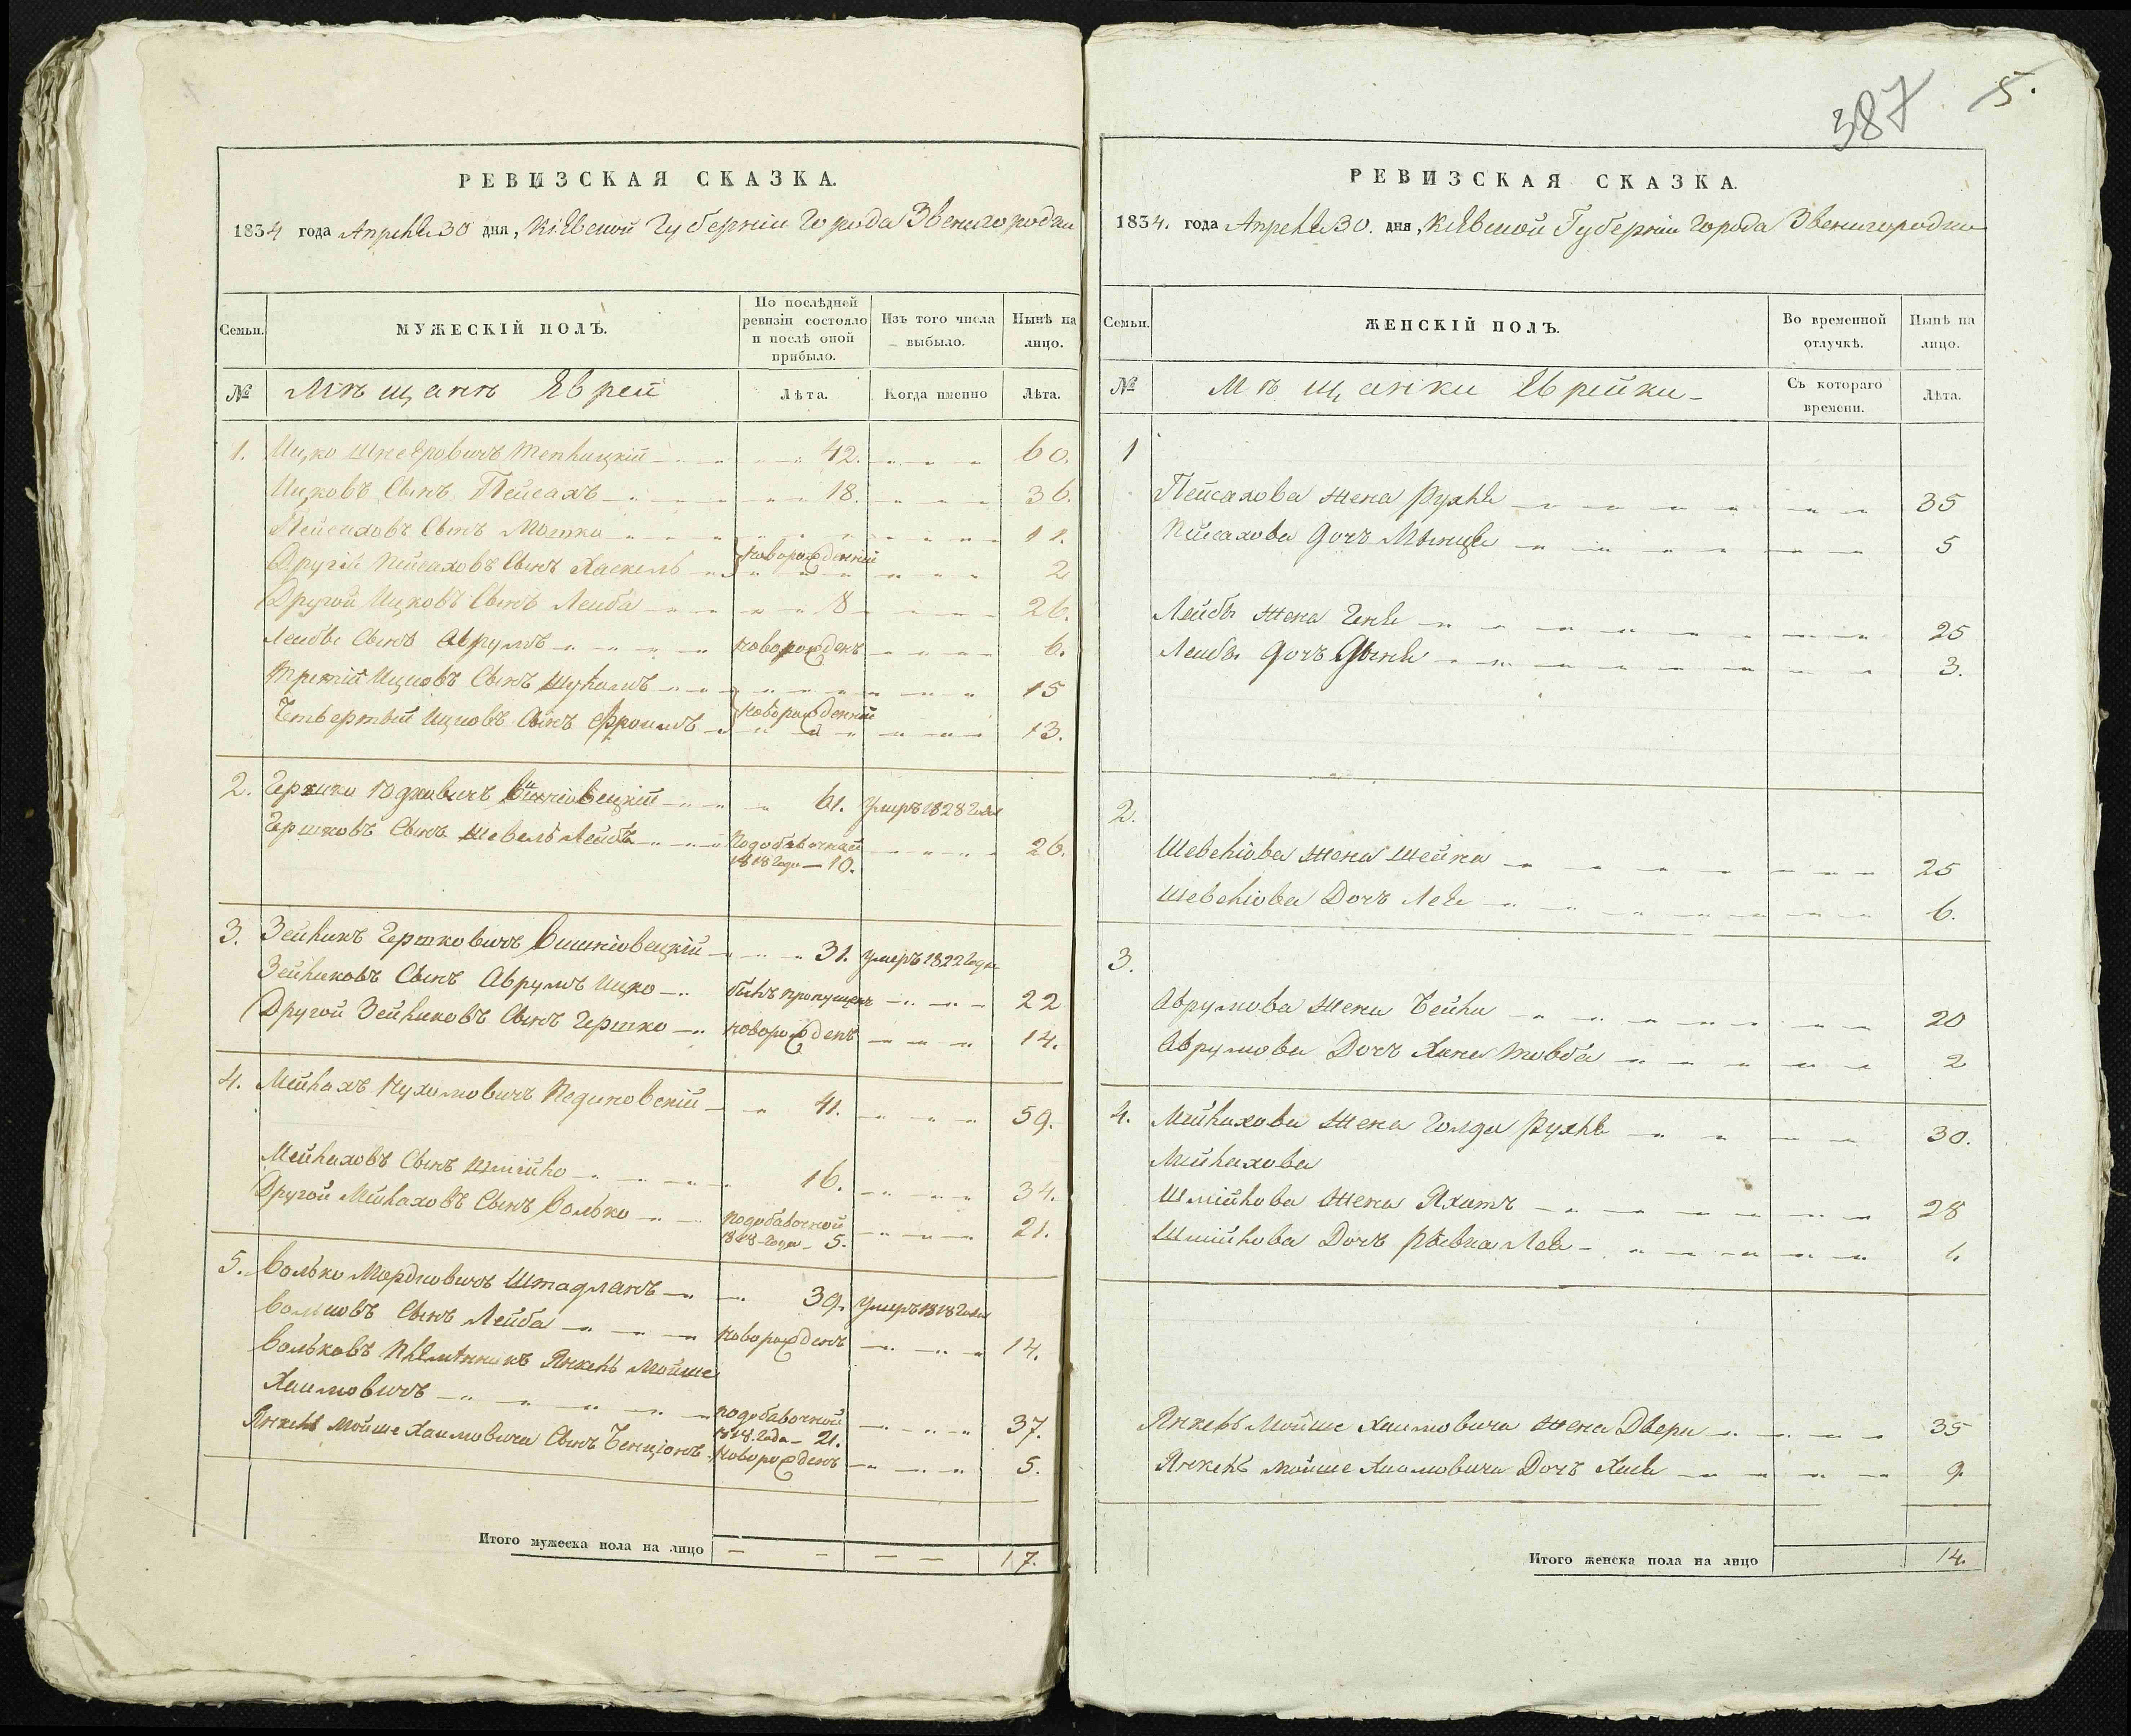 РЕВИЗСКАЯ СКАЗКА.
1834 года Апреля 30 дня, Киевской Губерніи Города Звенигородки
Семьи.
МУЖЕСКІЙ ПОЛЪ.
По послѣдней ревизіи состояло и послѣ оной прибыло.
Изъ того числа выбыло.
Нынѣ на лицо.
№ Мѣщанъ Еврей
Лѣта. Когда именно Лѣта.
1. Ицко Шнееровичъ 42. 60.
Ицковъ Сынъ Пейсахъ 18. 36.
Пейсаховъ Сынъ Мошко 11.
Другій Пейсаховъ Сынъ Хаскель новорожденній 2
Другой Ицковъ Сынъ Лейба 8 26.
Лейбы Сынъ Аврумъ новорожденъ 6.
Третій Ицковъ Сынъ 15
Четвертый Ицковъ Сынъ Фроимъ новорожденній 13.
2. Гершко Юдковичъ 61. Умеръ 1828 Года
Гершковъ Сынъ Шевель Лейба подобавочной 1818 Года – 10. 26.
3. Зейликъ Гершковичъ Вишніовецкій 31. Умеръ 1822 Года
Зейликовъ Сынъ Аврумъ Ицко былъ пропущенъ 22
Другой Зейликовъ Сынъ Гершко новорожденъ 14.
4. Мейлахъ Нухимовичъ 41. 59.
Мейлаховъ Сынъ Шмійло 16. 34.
Другой Мейлаховъ Сынъ Волько подобавочной 1818 Года – 5. 21.
5. Волько Мордковичъ Штадланъ 39. Умеръ 1818 Года
Вольковъ Сынъ Лейба новорожденъ 14.
Вольковъ Племянникъ Янкель Мойше
Хаимовичъ подобавочной 1818 Года – 21. 37.
Янкель Мойше Хаимовича Сынъ Бенціонъ новорожденъ 5.
Итого мужеска пола на лицо 17.
387 5.
РЕВИЗСКАЯ СКАЗКА.
1834. года Апреля 30. дня, Киевской Губерніи Города Звенигородки
Семьи.
ЖЕНСКІЙ ПОЛЪ.
Во временной отлучкѣ.
Нынѣ на лицо.
№ Мѣщанки Еврейки
Съ котораго времени. Лѣта.
1
Пейсахова Жена Рухля 35
Пейсахова Дочъ 5
Лейбы Жена Геня 25
Лейбы Дочъ 3.
2.
Шевеліова Жена Шейна 25
Шевеліова Дочъ Лея 6.
3.
Аврумова Жена Бейла 20
Аврумова Дочъ Хана Товба 2
4. Мейлахова Жена Голда Рухля 30.
Мейлахова
Шмійлова Жена 28
Шмійлова Дочъ Лея 6
Янкель Мойше Хаимовича Жена Двера 35
Янкель Мойше Хаимовича Дочъ Хая 9
Итого женска пола на лицо 14.